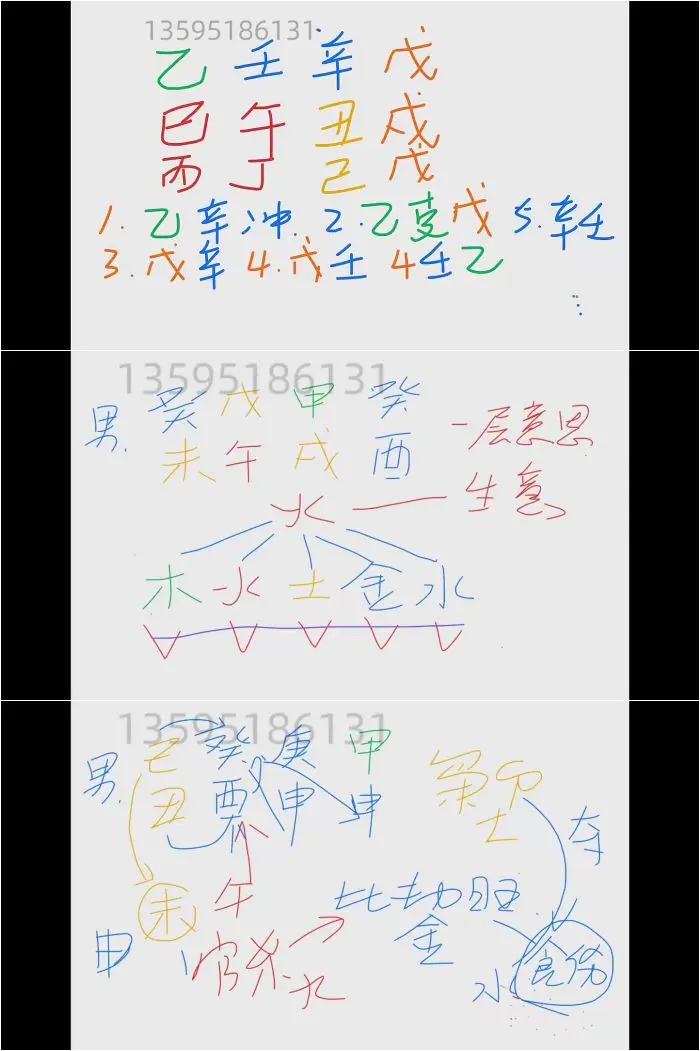 13595186131
乙 壬 辛 戊
巳 午 丑 戌
丙 丁 己 戊
1. 乙辛冲. 2. 乙支戊 5. 辛壬
3. 戊辛 4. 戊壬 4壬乙
13595186131
男. 癸 戊 甲 癸
未 午 戌 酉
一层意思
火 生意
木 火 土 金 水
13595186131
男. 己 癸 庚 甲
丑 酉 申 申
土 夺
未 午 比劫旺
金
申 官杀 火 水 食伤